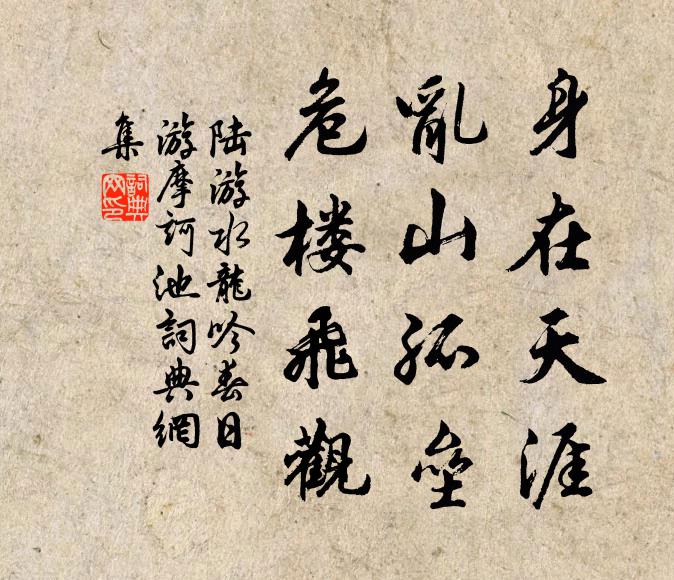 身在天涯
亂山孤壘
危楼飛觀
陆游水龍吟春日
游摩訶池詞典網
集
詞典
网印